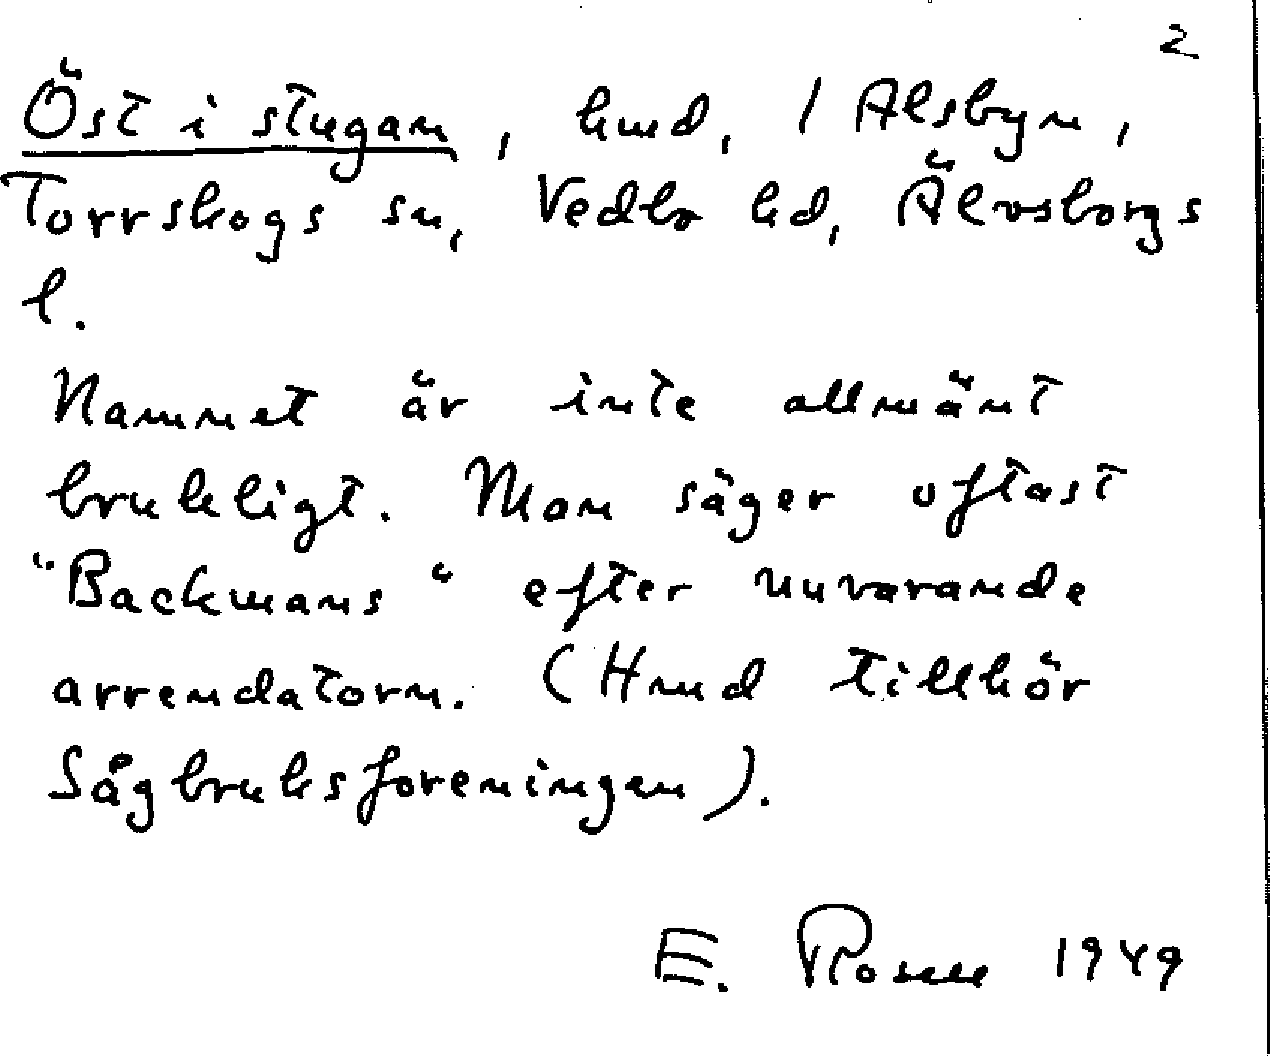 2
Öst i stugan, hmd, 1 Alsbyn,
Torrskogs sn, Vedbo hd, Älvsborgs
l.
Namnet är inte allmänt
brukligt. Man säger oftast
"Backmans" efter nuvarande
arrendatorn. (Hmd tillhör
Sågbruksföreningen).
E. Rosell 1949